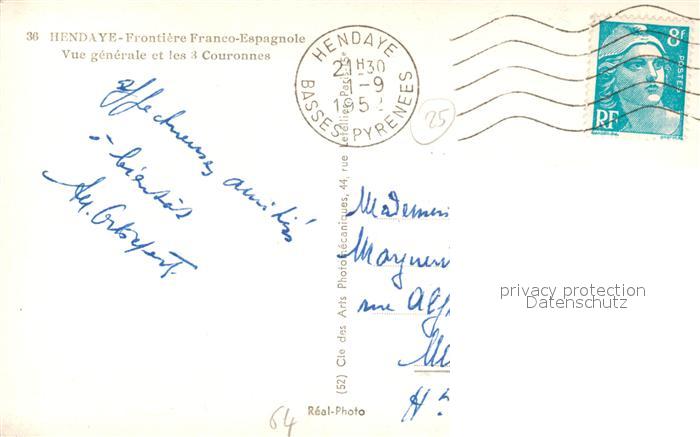 36 HENDAYE - Frontière Franco-Espagnole
Vue générale et les 3 Couronnes
HENDAYE
21H30
1-9
195
BASSES PYRENEES
25
8f
POSTES
RF
affectueuses amitiés
à bientôt
Mademoi
Marguer
rue Alf
Me
H
privacy protection
Datenschutz
(52) Cie des Arts Photomécaniques, 44, rue Letellier, Paris
Réal-Photo
64